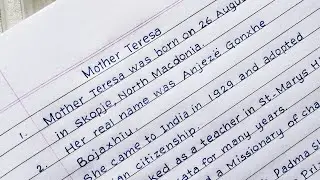 Mother Teresa
1. Mother Teresa was born on 26 Augu
in Skopje, North Macdonia.
2. Her real name was Anjezë Gonxhe
Bojaxhiu.
She came to India in 1929 and adopted
ian citizenship.
ked as a teacher in St. Mary's H
ata for many years.
a Missionary of cha
Padma S